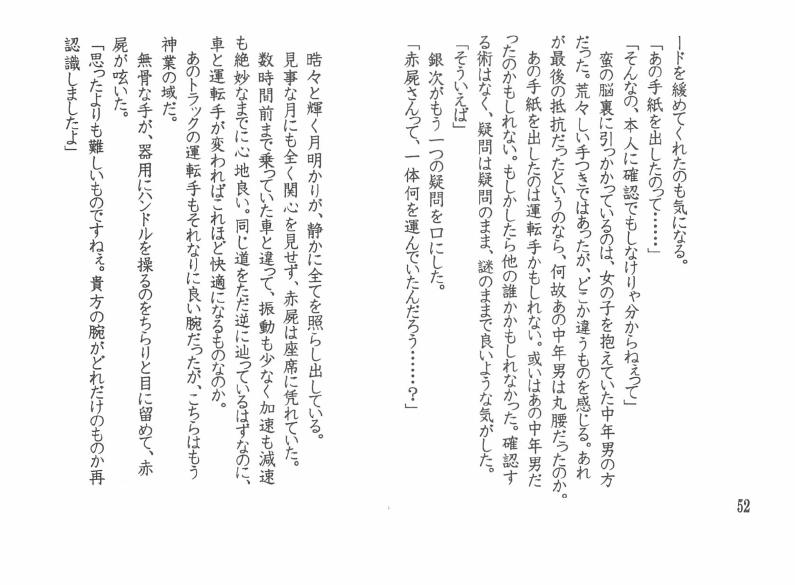 ードを緩めてくれたのも気になる。
「あの手紙を出したのって……」
「そんなの、本人に確認でもしなけりゃ分からねぇって」
蛮の脳裏に引っかかっているのは、女の子を抱えていた中年男の方
だった。荒々しい手つきではあったが、どこか違うものを感じる。あれ
が最後の抵抗だったというのなら、何故あの中年男は丸腰だったのか。
あの手紙を出したのは運転手かもしれない。或いはあの中年男だ
ったのかもしれない。もしかしたら他の誰かかもしれなかった。確認す
る術はなく、疑問は疑問のまま、謎のままで良いような気がした。
「そういえば」
銀次がもう一つの疑問を口にした。
「赤屍さんって、一体何を運んでいたんだろう………？」
晧々と輝く月明かりが、静かに全てを照らし出している。
見事な月にも全く関心を見せず、赤屍は座席に凭れていた。
数時間前まで乗っていた車と違って、振動も少なく加速も減速
も絶妙なまでに心地良い。同じ道をただ逆に辿っているはずなのに、
車と運転手が変わればこれほど快適になるものなのか。
あのトラックの運転手もそれなりに良い腕だったが、こちらはもう
神業の域だ。
無骨な手が、器用にハンドルを操るのをちらりと目に留めて、赤
屍が呟いた。
「思ったよりも難しいものですねぇ。貴方の腕がどれだけのものか再
認識しましたよ」
52